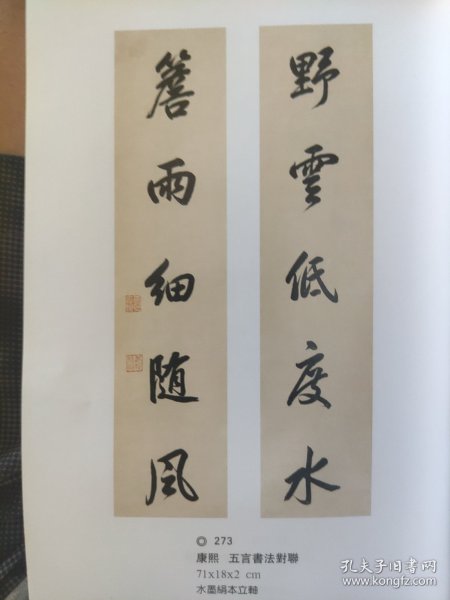 野雲低度水
簷雨細随風
◎ 273
康熙 五言書法對聯
71x18x2 cm
水墨絹本立軸
孔夫子旧书网
www.kongfz.com